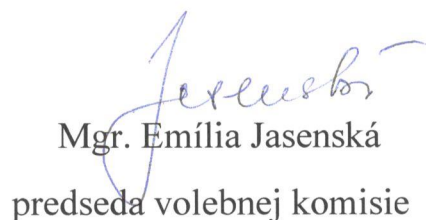 Jasenská
Mgr. Emília Jasenská
predseda volebnej komisie